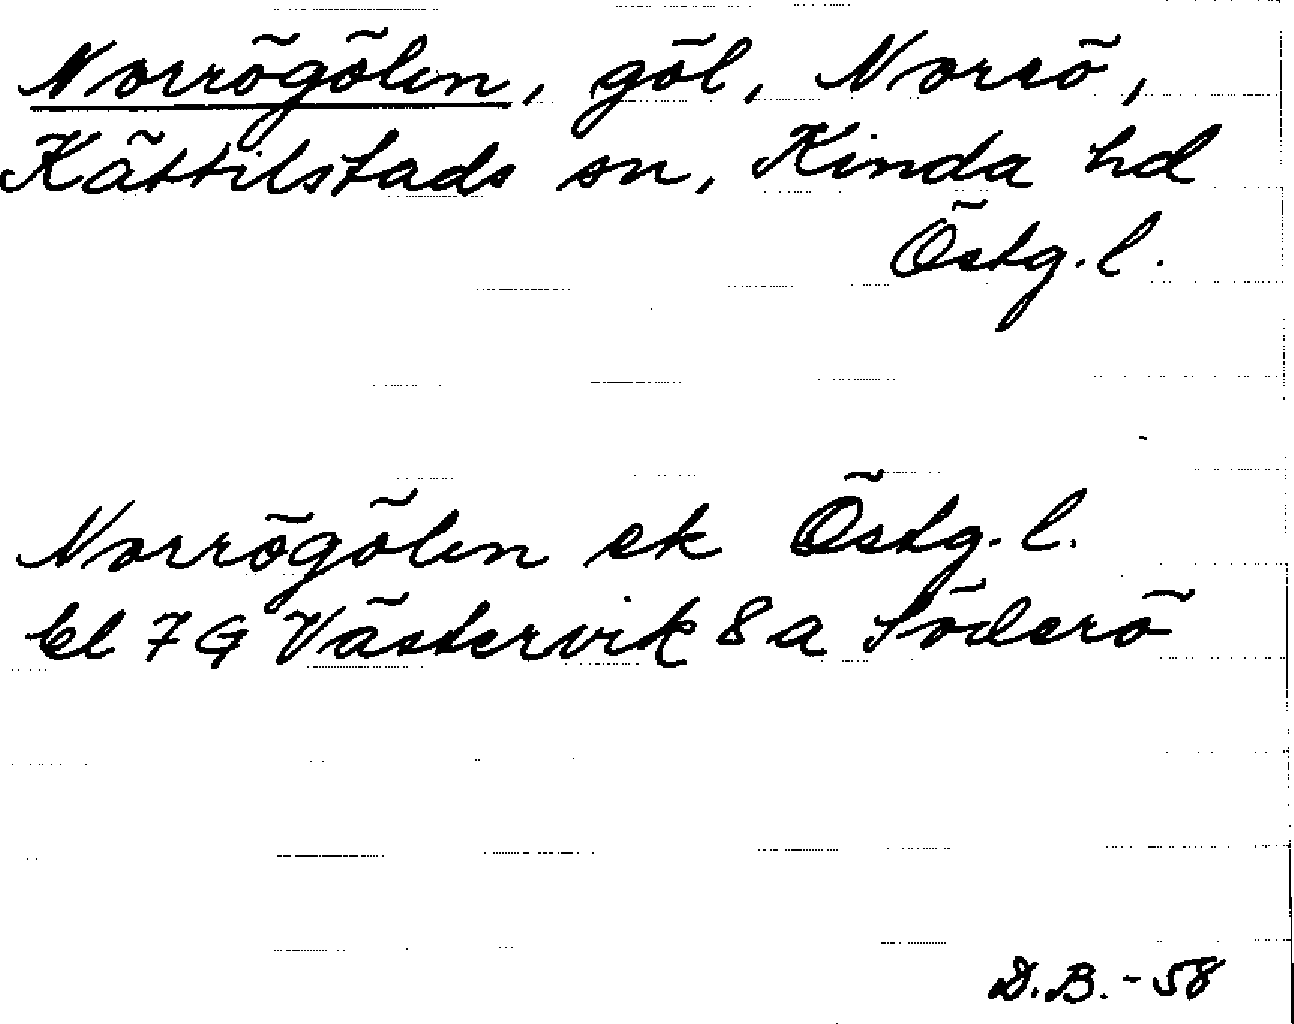 Norrögölen, göl, Norrö,
Kättilstads sn, Kinda hd
Östg. l.
Norrögölen ek Östg. l.
bl 7G Västervik 8a Söderö
D.B. - 58